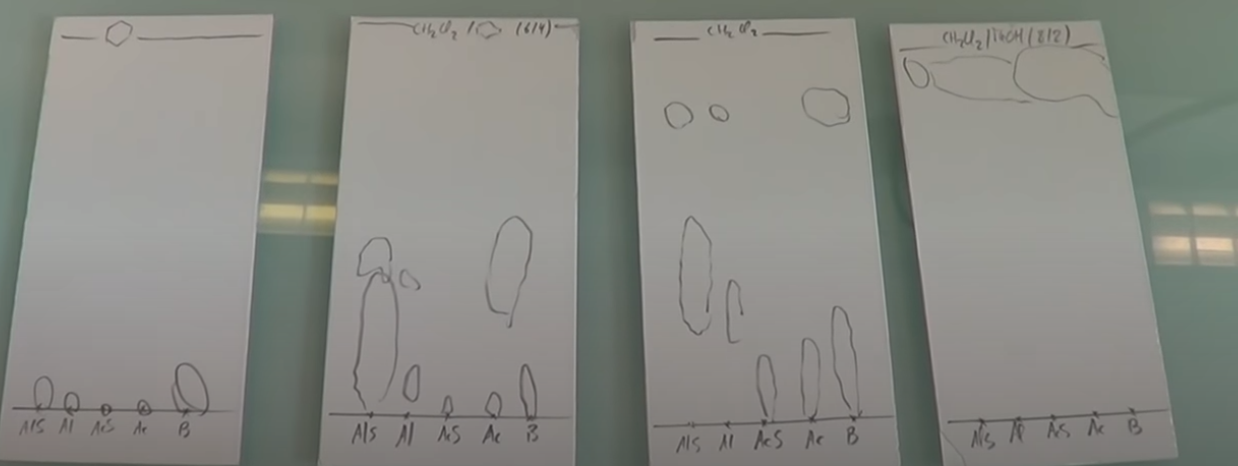 AlS Al AcS Ac B
CH₂Cl₂ / (6/4)
AlS Al AcS Ac B
CH₂Cl₂
AlS Al AcS Ac B
CH₂Cl₂/MeOH (8/2)
AlS Al AcS Ac B